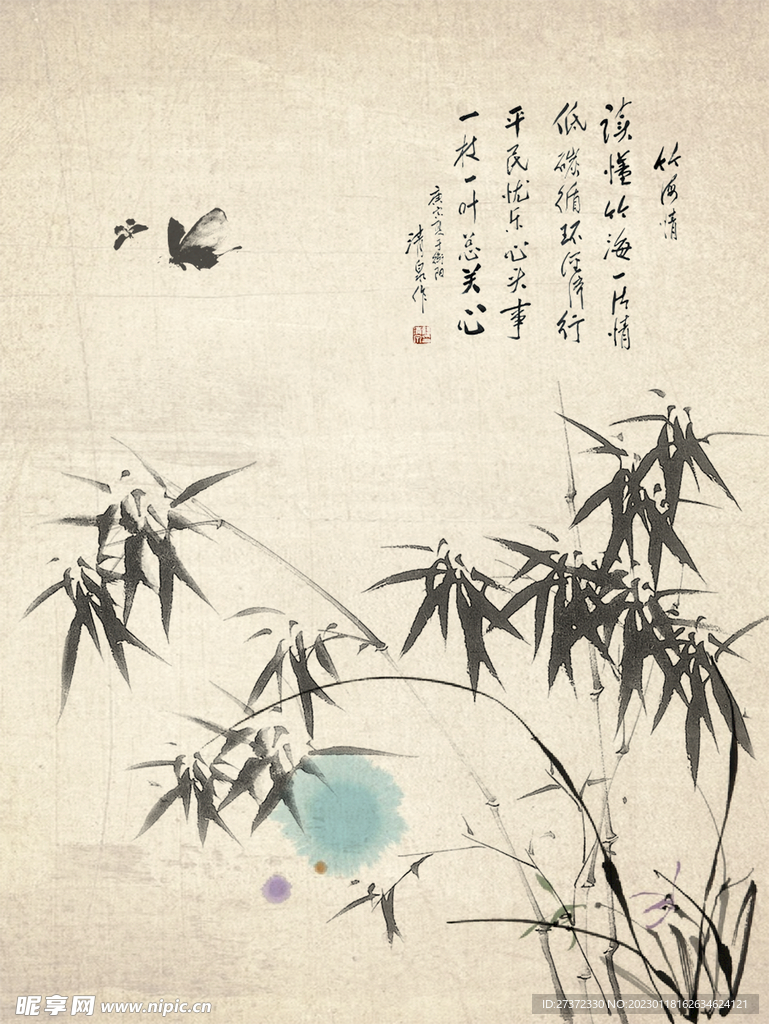 竹海情
读懂竹海一片情
低碳循环泾渭行
平民忧乐心头事
一枝一叶总关心
清泉作
昵享网 www.nipic.cn
ID:27372330 NO:20230118162634624121